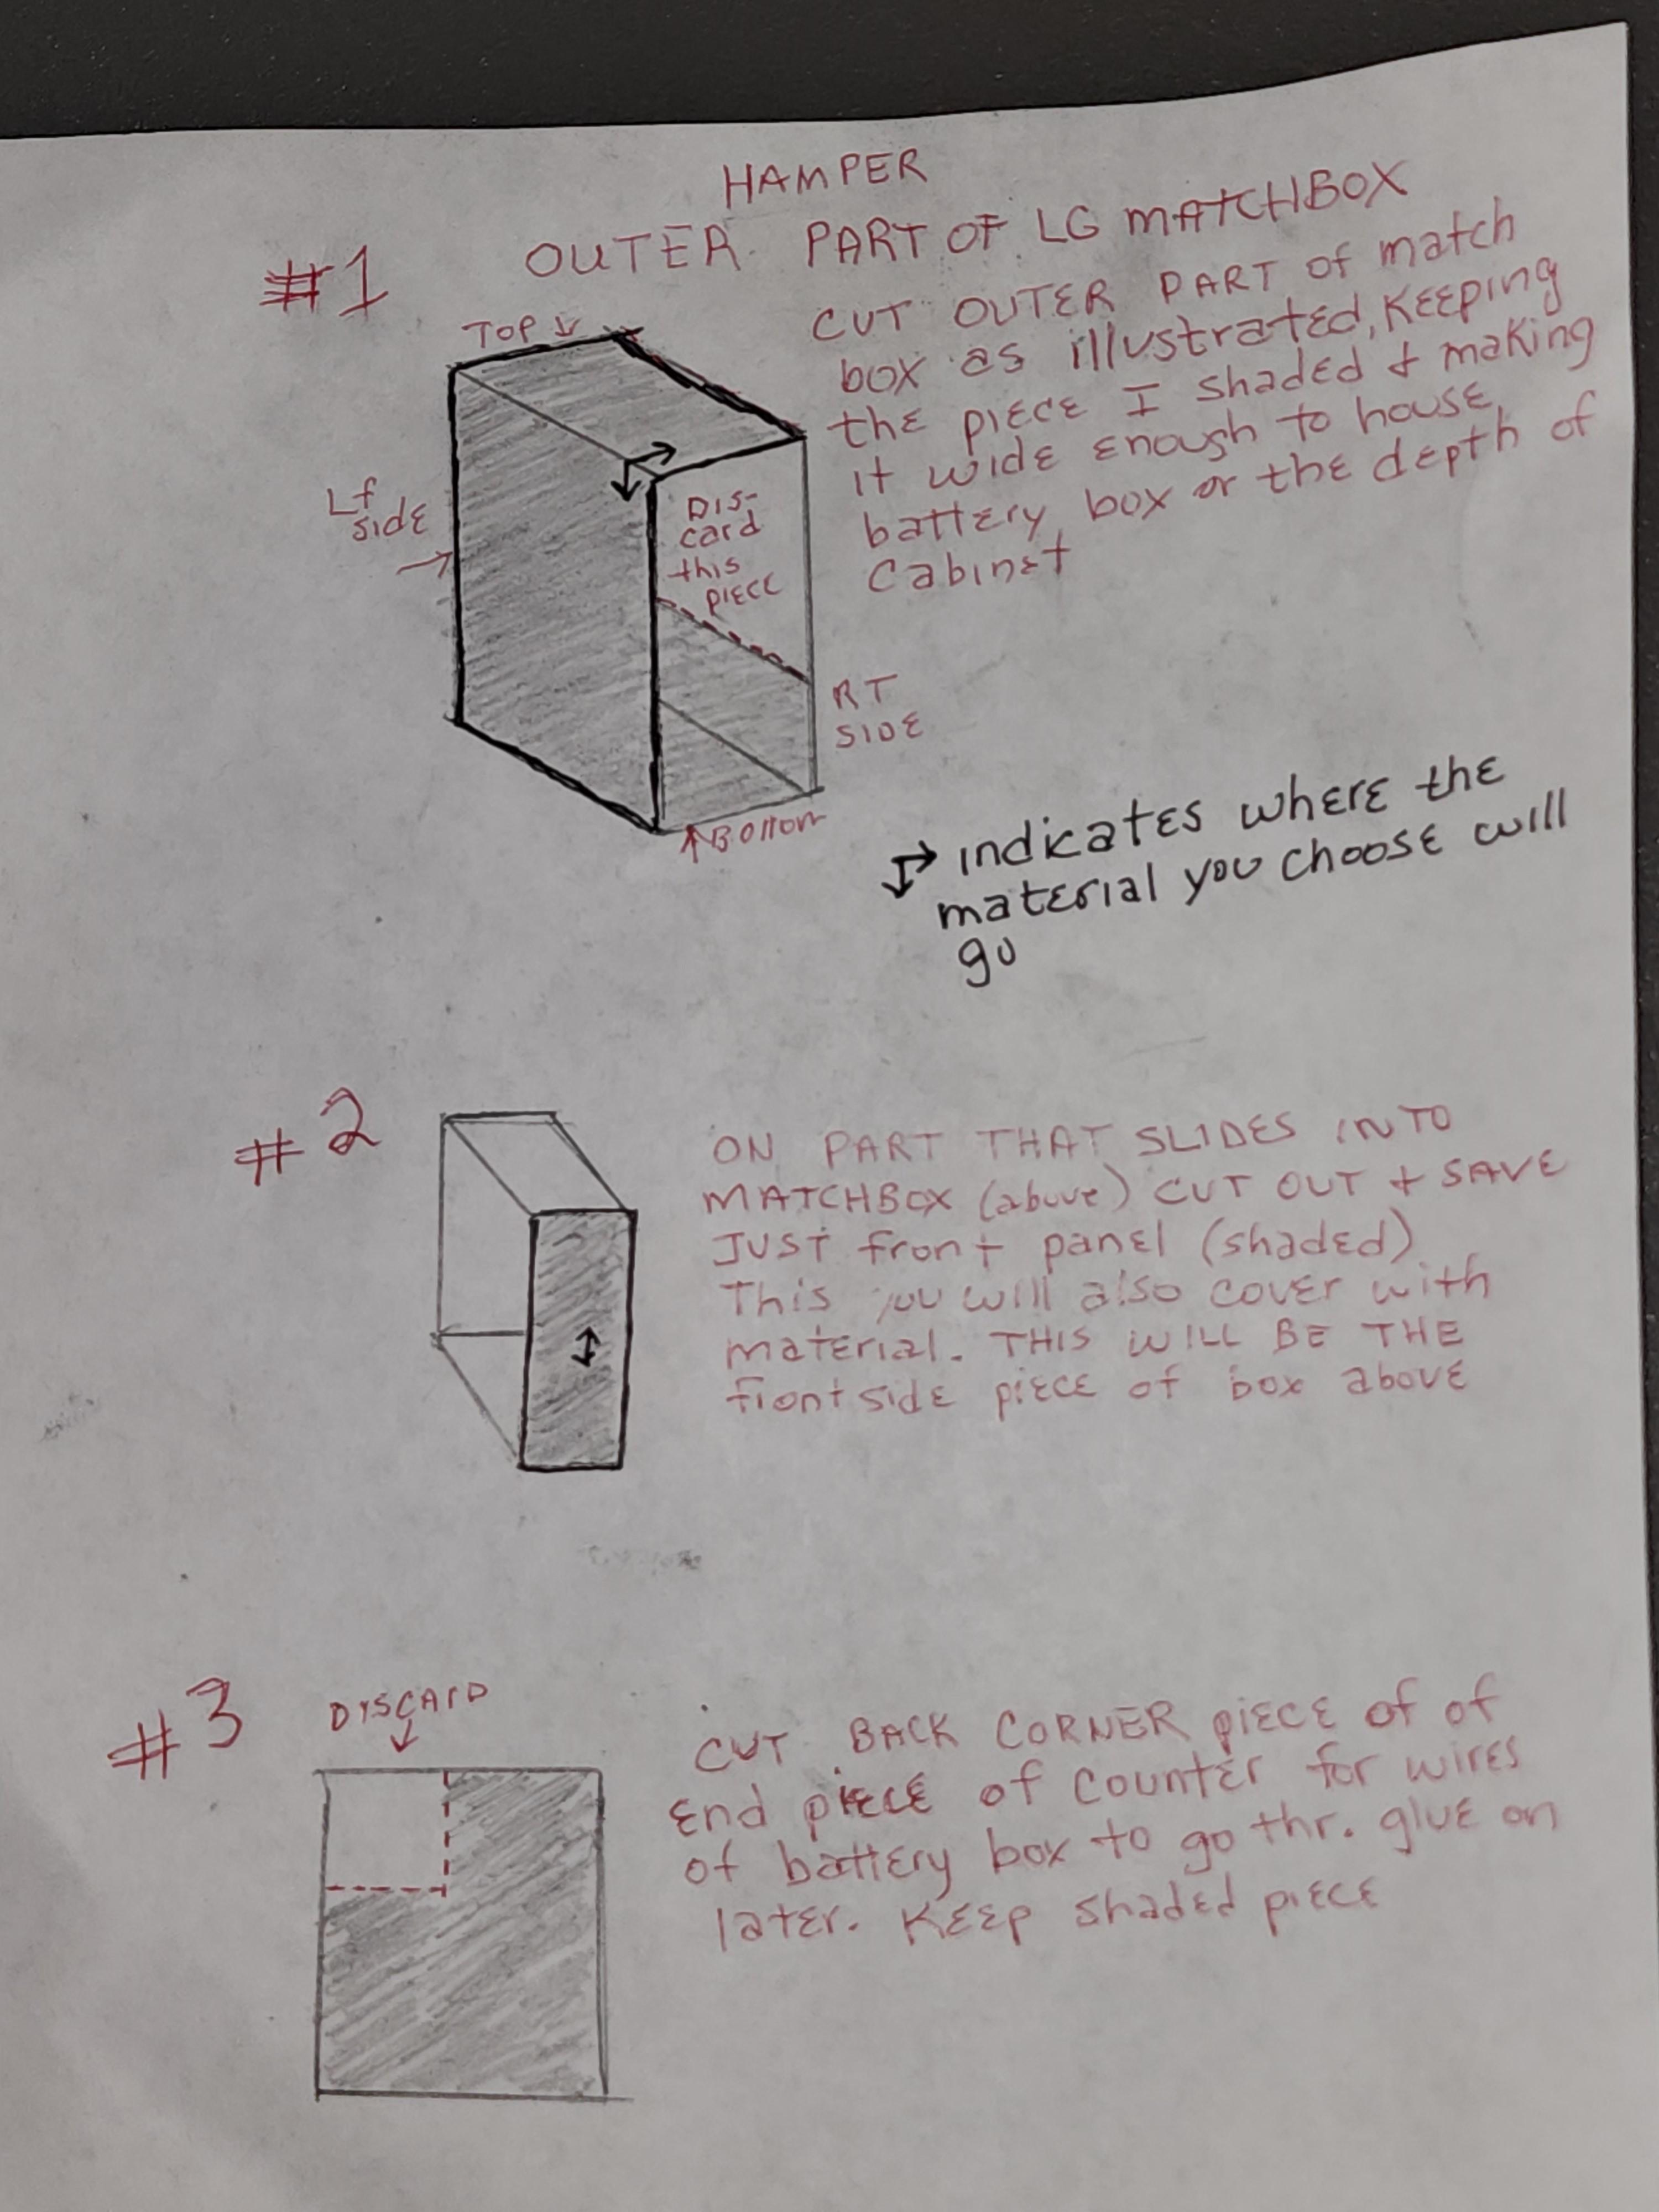 HAMPER
#1 OUTER PART OF LG MATCHBOX
CUT OUTER PART OF match
box as illustrated, KEEPING
the piece I shaded & making
it wide enough to house
battery box or the depth of
Cabinet
TOP
Lf
side
DIS-
card
this
piece
RT
SIDE
Bottom
indicates where the
material you choose will
go
#2
ON PART THAT SLIDES INTO
MATCHBOX (above) CUT OUT + SAVE
JUST front panel (shaded)
This you will also cover with
material. THIS WILL BE THE
front side piece of box above
#3
DISCARD
CUT BACK CORNER piece of of
End piece of counter for wires
of battery box to go thr. glue on
later. Keep shaded piece